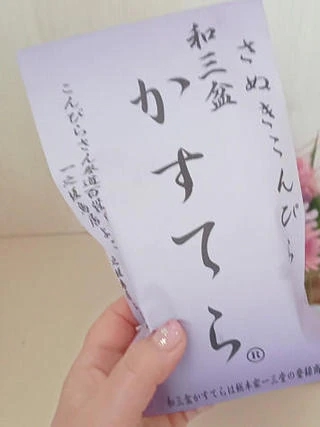 さぬきこんぴら
和三盆
かすてら®
こんぴらさん参道
和三盆かすてらは栃木家一三堂の登録商